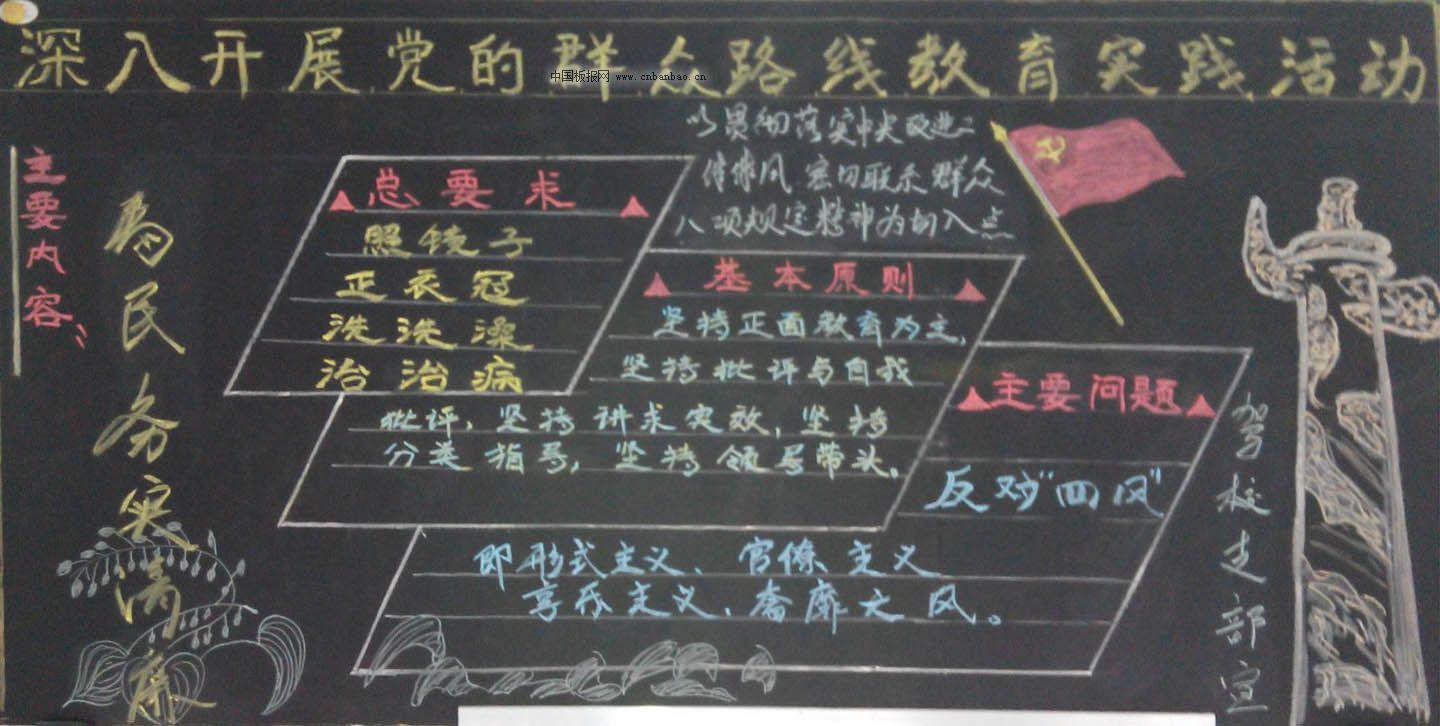 深入开展党的群众路线教育实践活动
中国板报网 www.cnbanbao.cn
主要内容:
为民务实清廉
以贯彻落实中央改进工
作作风 密切联系群众
八项规定精神为切入点
总要求
照镜子
正衣冠
洗洗澡
治治病
基本原则
坚持正面教育为主,
坚持批评与自我
批评,坚持讲求实效,坚持
分类指导,坚持领导带头。
主要问题
反对"四风"
即形式主义、官僚主义
享乐主义、奢靡之风。
驾校支部宣